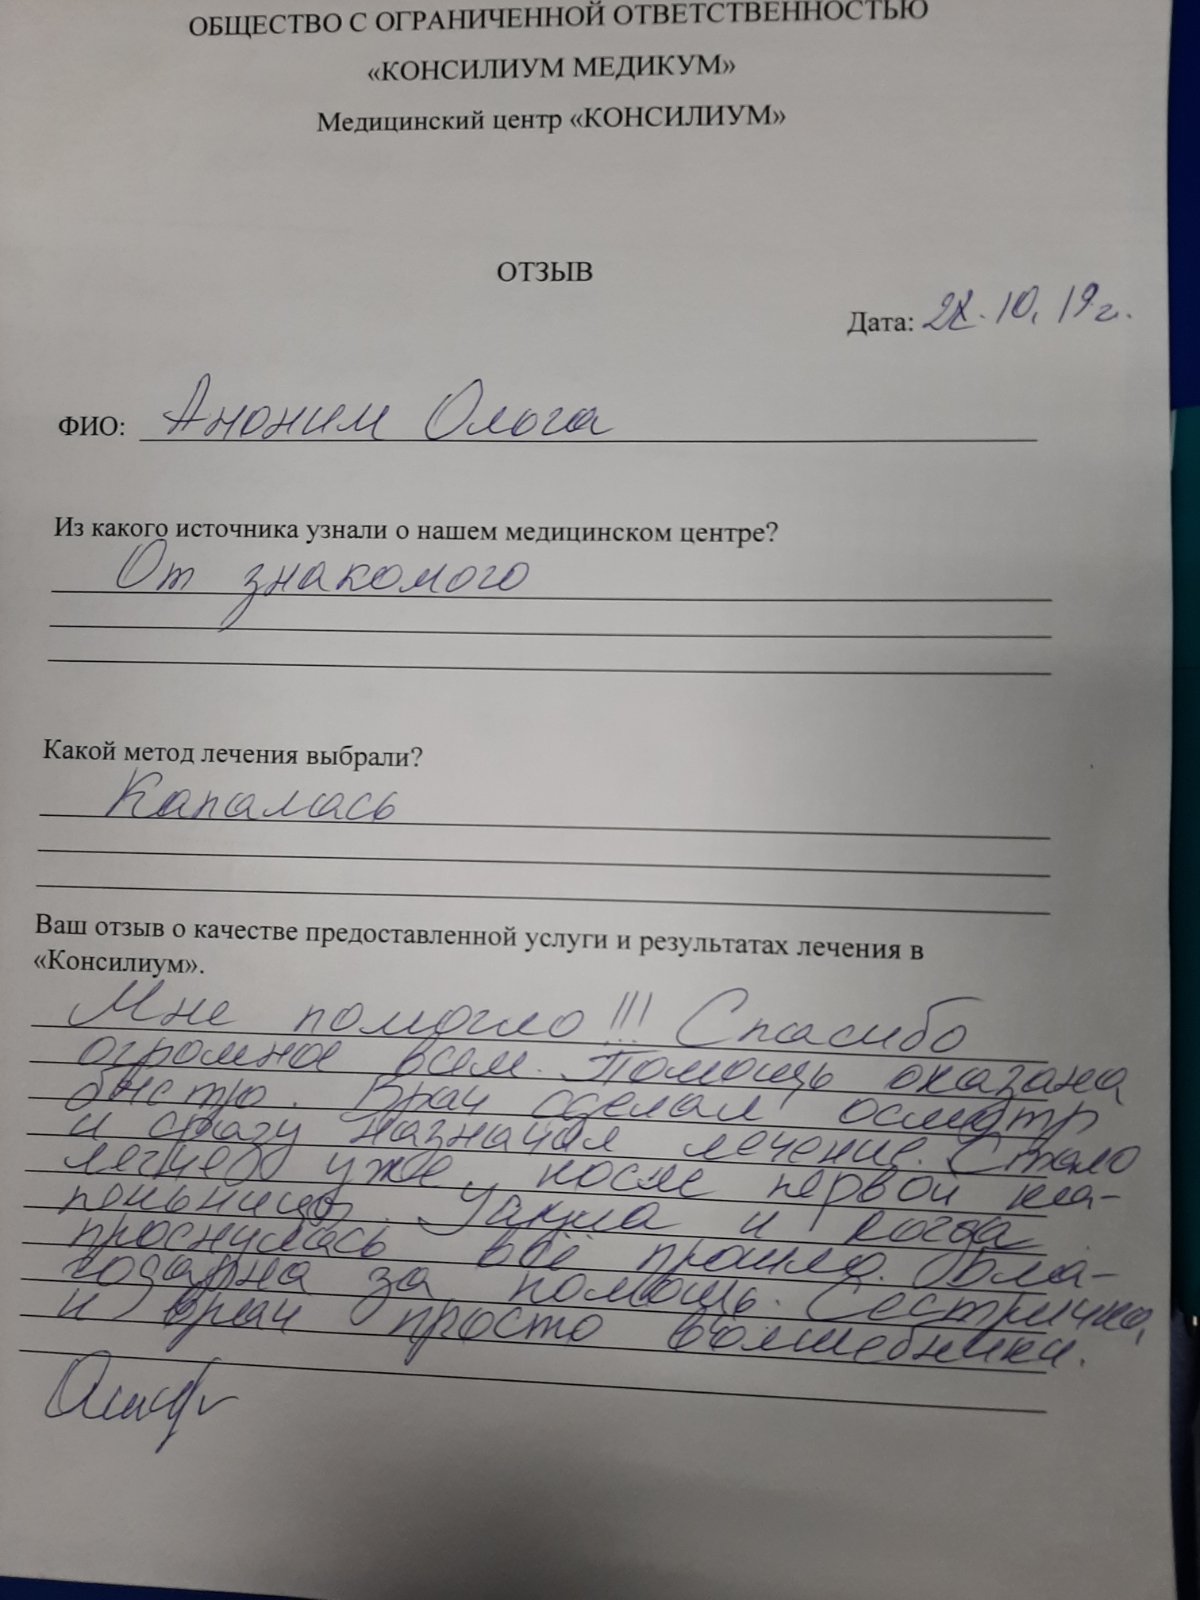 ОБЩЕСТВО С ОГРАНИЧЕННОЙ ОТВЕТСТВЕННОСТЬЮ
«КОНСИЛИУМ МЕДИКУМ»
Медицинский центр «КОНСИЛИУМ»
ОТЗЫВ
Дата: 22.10.19г.
ФИО: Аноним Ольга
Из какого источника узнали о нашем медицинском центре?
От знакомого
Какой метод лечения выбрали?
Капалась
Ваш отзыв о качестве предоставленной услуги и результатах лечения в
«Консилиум».
Мне помогло!!! Спасибо
огромное всем. Помощь оказана
быстро. Врач сделал осмотр
и сразу назначил лечение. Стало
легче уже после первой ка-
пельницы. Уснула и когда
проснулась всё прошло. Бла-
годарна за помощь. Сестричка
и врач просто волшебники.